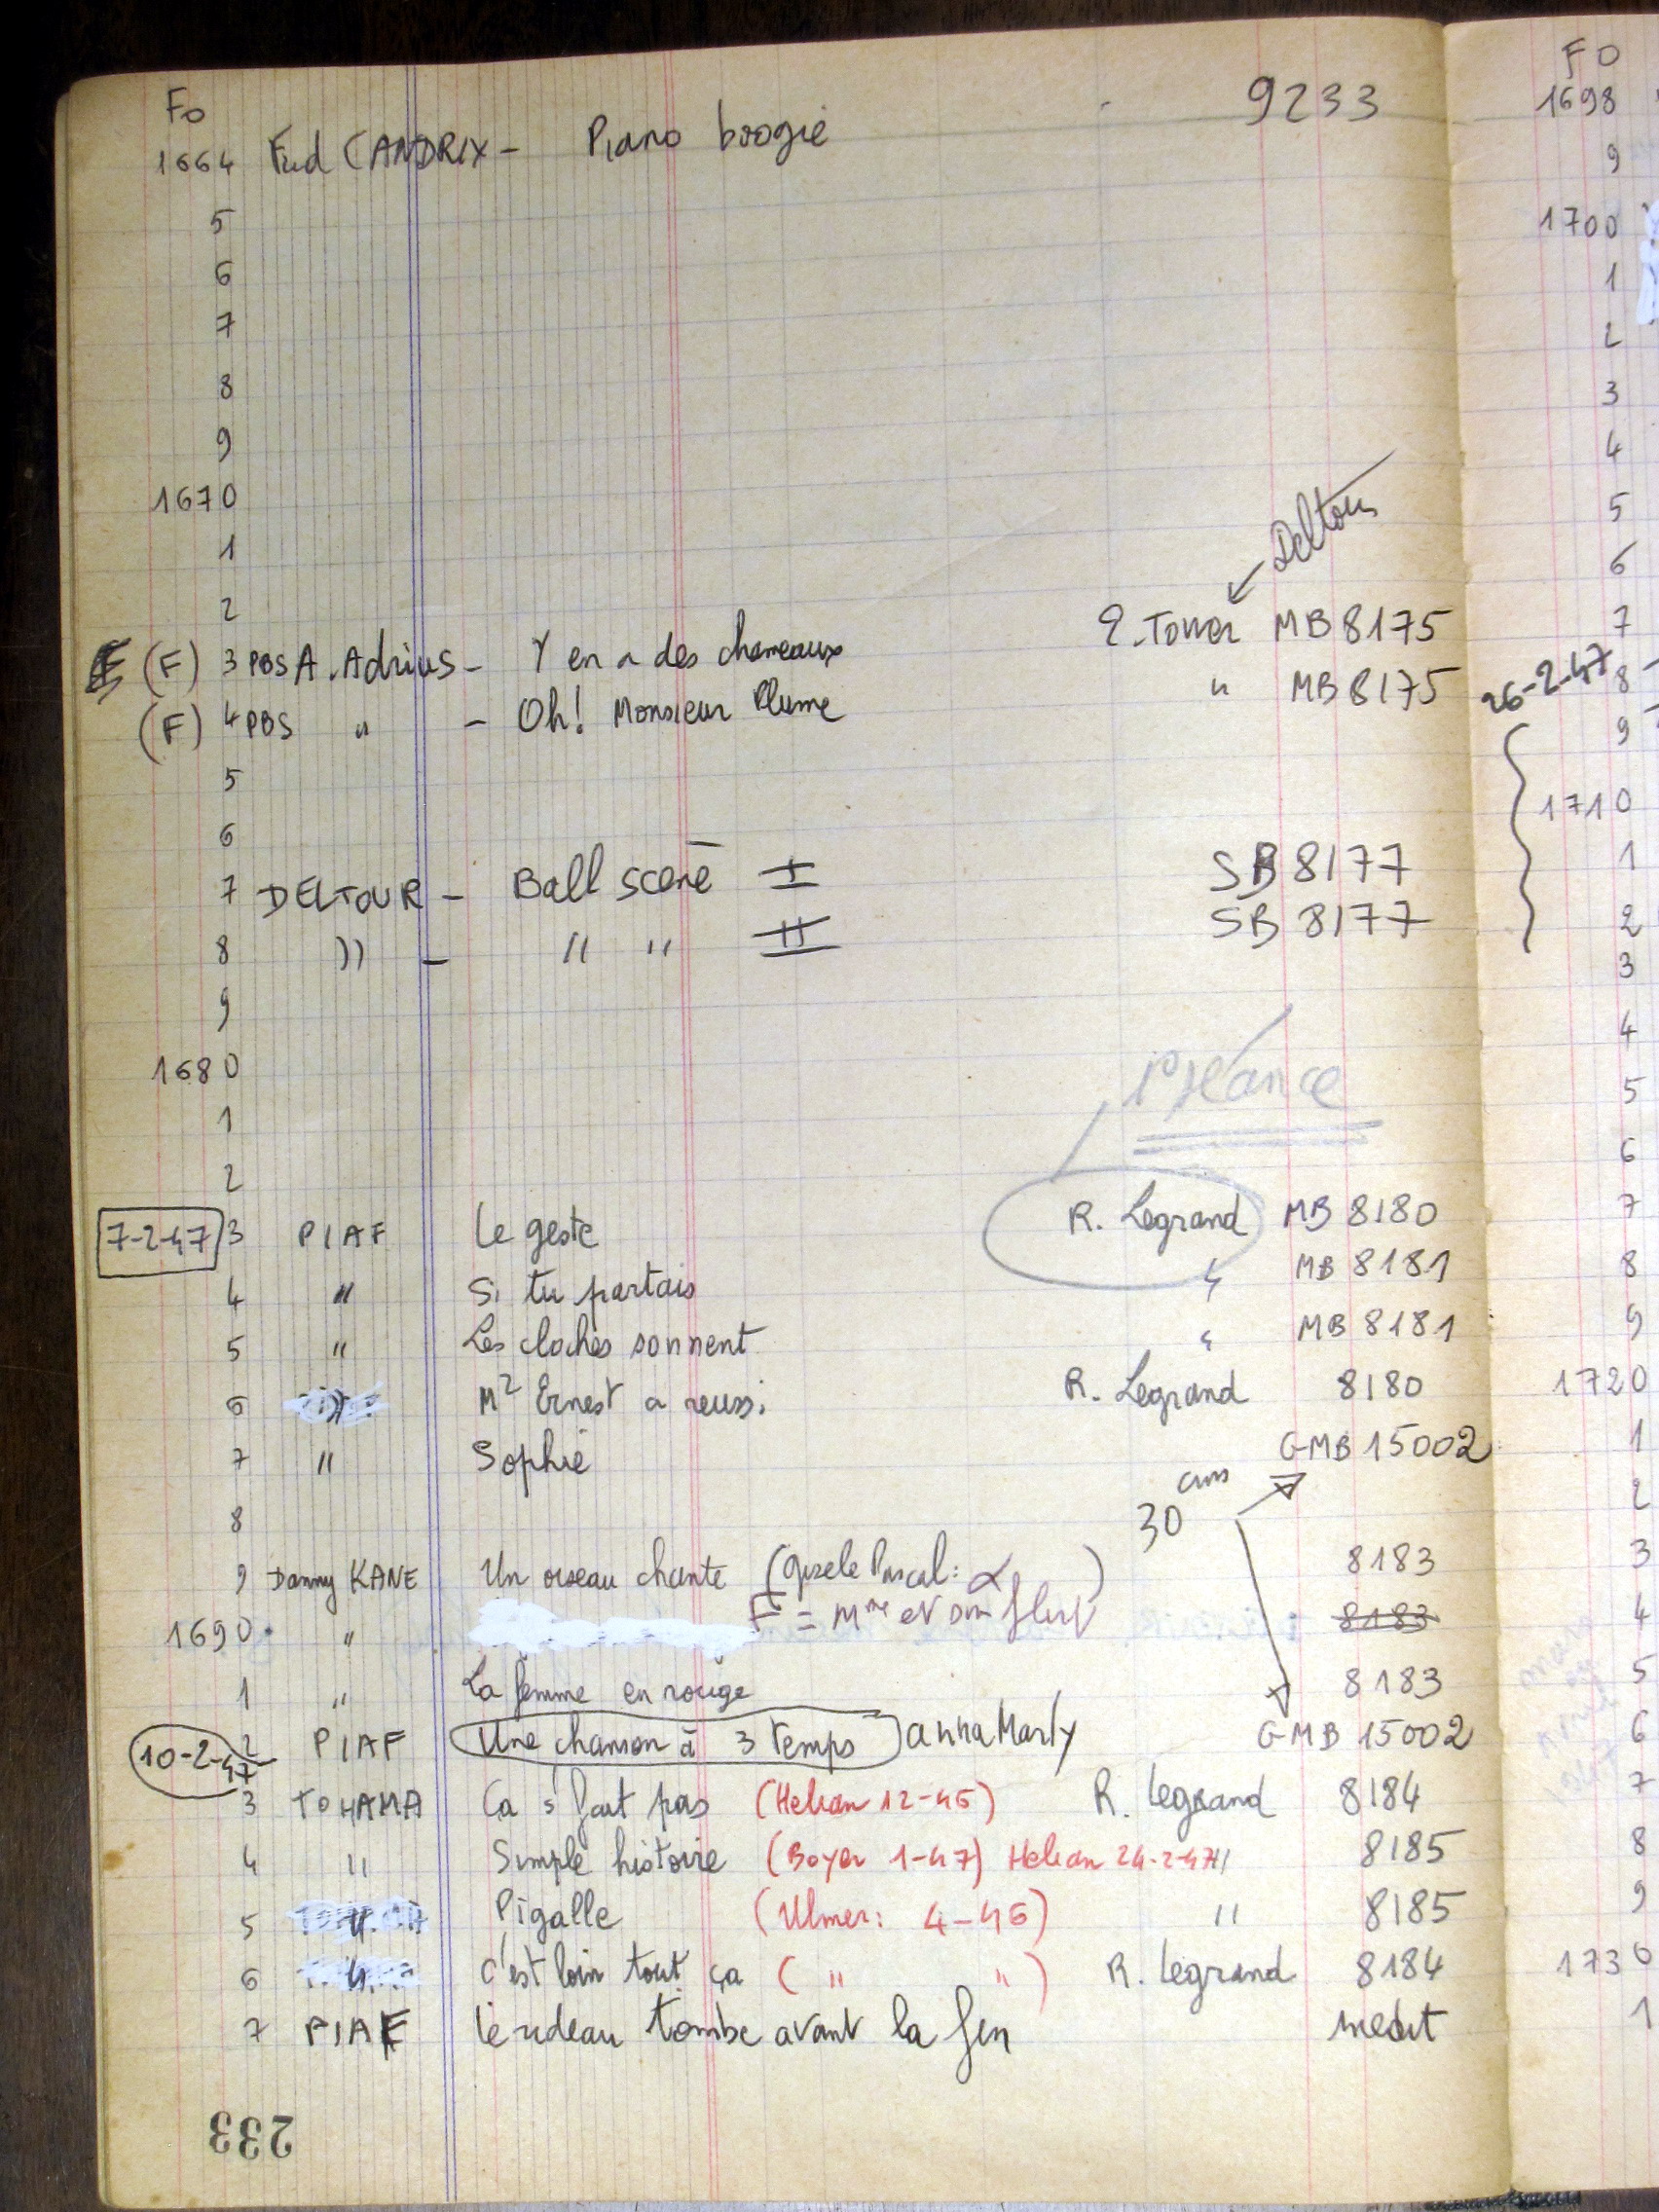 Fo
1664 Fud CANDRIX - Piano boogie 9233
5
6
7
8
9
1670
1
2
Deltour
(F) 3 PBS A. Adrius - Y en a des chameaux E. Tower MB 8175
(F) 4 PBS " - Oh! Monsieur Plume " MB 8175
5
6
7 DELTOUR - Ball scene I SB 8177
8 )) - " " II SB 8177
9
1680
1
1º séance
2
7-2-47 3 PIAF Le geste R. Legrand MB 8180
4 " Si tu partais " MB 8181
5 " Les cloches sonnent " MB 8181
6 " Mr Ernest a reussi R. Legrand 8180
7 " Sophie GMB 15002
30 cms
8
9 Danny KANE Un oiseau chante (Gisele Pascal: ) 8183
F = Mme et son flirt
1690 " 8183
1 " La femme en rouge 8183
10-2-47 2 PIAF Une chanson à 3 temps anna Marly GMB 15002
3 TOHAMA Ca s'fait pas (Helian 12-46) R. Legrand 8184
4 " Simple histoire (Boyer 1-47) Helian 24-2-47 " 8185
5 " Pigalle (Ulmer: 4-46) " 8185
6 " C'est loin tout ça ( " " ) R. Legrand 8184
7 PIAF Le rideau tombe avant la fin inedit
233
FO
1698
9
1700
1
2
3
4
5
6
7
26-2-47 8
9
1710
1
2
3
4
5
6
7
8
9
1720
1
2
3
4
5
6
7
8
9
1730
1